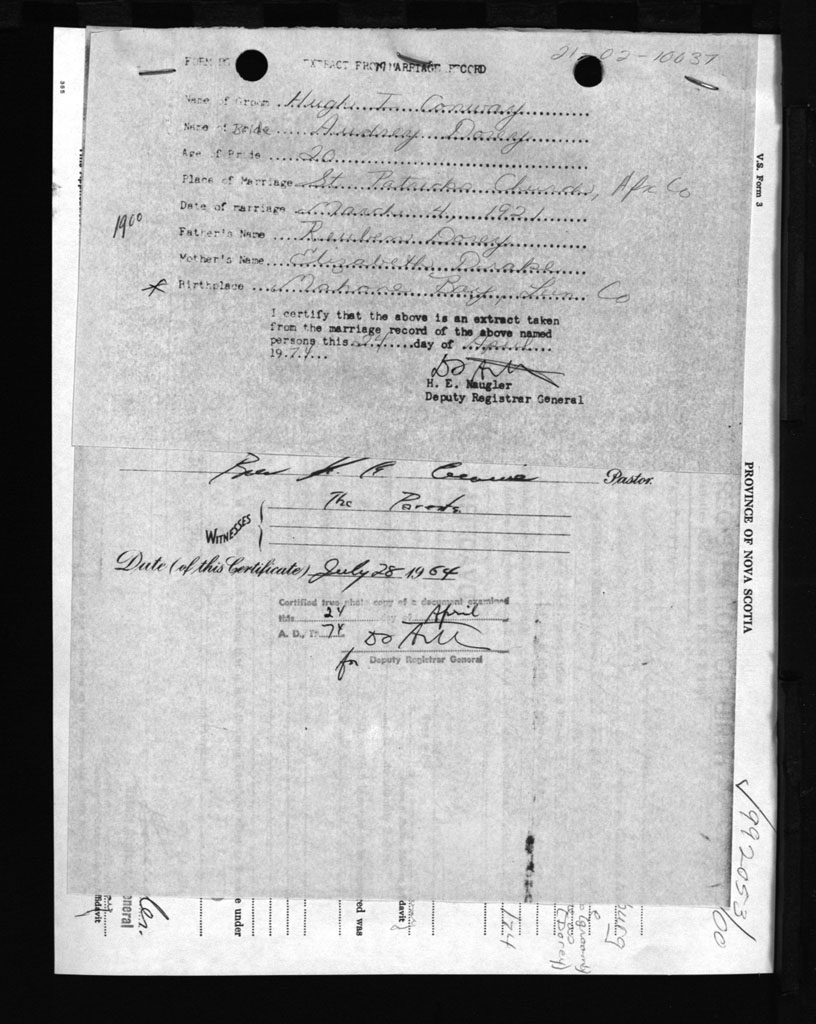 21-02-10037
EXTRACT FROM MARRIAGE RECORD
Name of Groom Hugh I. Conway
Name of Bride Audrey Dorey
Age of Bride 20
Place of Marriage St Patricks Church, Apx Co
Date of marriage March 4, 1921
1900
Father's Name Reuben Dorey
Mother's Name Elizabeth Drake
* Birthplace Mahone Bay, Lun Co
I certify that the above is an extract taken
from the marriage record of the above named
persons this 24 day of April
1974
H. E. Naugler
Deputy Registrar General
Pastor.
WITNESSES
The
Date (of this Certificate) July 28 1964
Certified true photo copy of a document examined
this 24 day of April
A. D., 19 74
for Deputy Registrar General
V.S. Form 3
PROVINCE OF NOVA SCOTIA
992053/00
e under
ved was
davit
174
(Dorey)
eneral
ffidavit